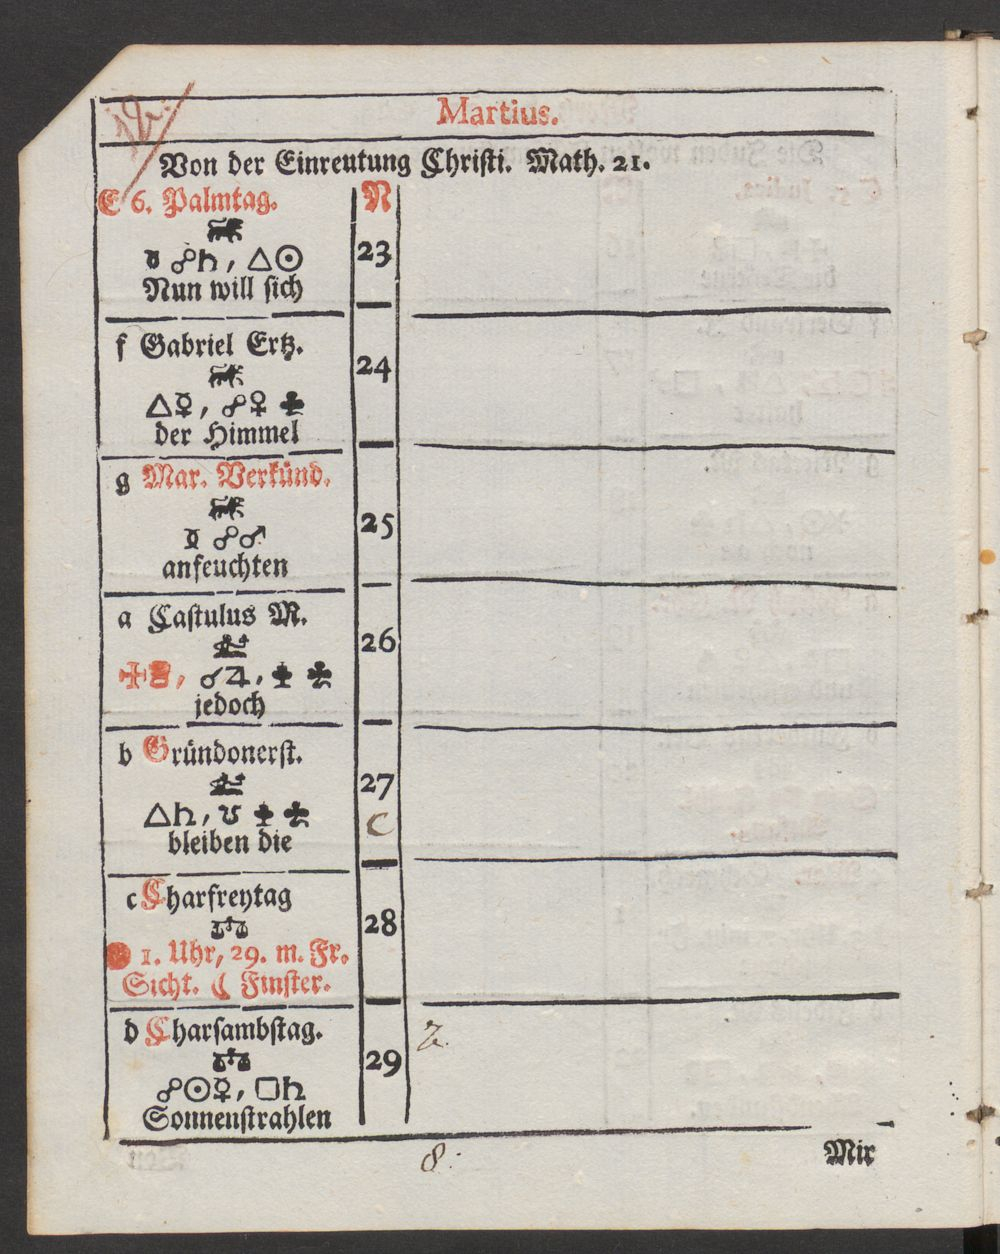 12.
Martius.
Von der Einreutung Christi. Math. 21.
E 6. Palmtag. N
☍♄, △☉ 23
Nun will sich
f Gabriel Ertz.
△☿, ☍♀ ♣ 24
der Himmel
g Mar. Verkünd.
☍♂ 25
anfeuchten
a Castulus M. 26
☌♃,
jedoch
b Gründonerst.
27
△♄, ☋ C
bleiben die
c Charfreytag
28
1. Uhr, 29. m. Fr.
Sicht. ☾ Finster.
d Charsambstag. 2.
29
☍☉☿, □♄
Sonnenstrahlen
8: Mir